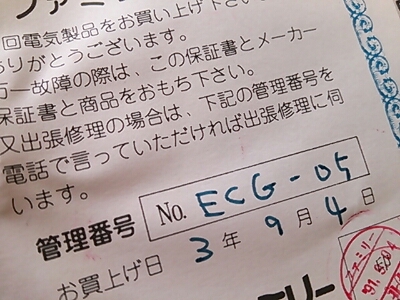 ファミ
回電気製品をお買い上げ下さい
ありがとうございます。
万一故障の際は、この保証書とメーカー
保証書と商品をおもち下さい。
又出張修理の場合は、下記の管理番号を
電話で言っていただければ出張修理に伺
います。
管理番号 No. ECG-05
お買上げ日 3年 9月 4日
ミリー
ファミリー